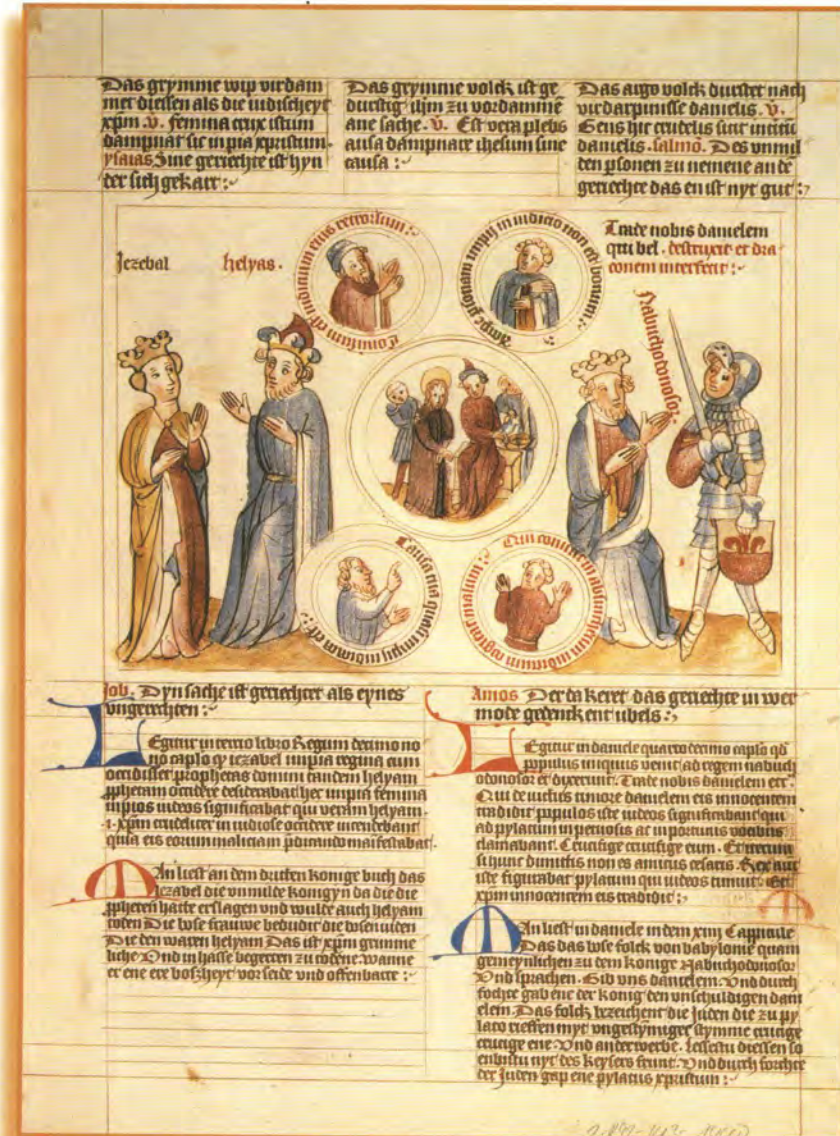 Das grymme wip virdam
met diessen als die iudischeyt
xpm .v. femina crux istum
dampnat sic inpia xpristum.
ysaias Sine geriechte ist hyn
der sich gekart :~
Das grymme volck ist ge
durstig ihm zu vordamme
ane sache .v. Est vera plebs
ausa dampnare ihesum sine
causa :~
Das argo volck durstet nach
virdarpnisse danielis .v.
Gens hic crudelis sunt
danielis. salmō. Des vnmil
den psonen zu nemene an dē
geriechte das en ist nyt gut :~
Jezebal
helyas .
Conversum est iudicium eius retrorsum :~
impij in iudicio non est bonum :~
Trade nobis danielem
qui bel . destruxit et dra
conem interfecit :~
Nabuchodonosor .
Causa tua quasi impij iudicata est
Qui convertitis in absinthium iudicium :~
Job . Dyn sache ist geriechtet als eynes
vngerechten :~
Legitur in tercio libro Regum decimo no
no caplo q iezabel impia regina cum
occidisset prophetas domini tandem helyam
pphetam occidere desiderabat her impia femina
inpios iudeos significabat qui verum helyam
.i. xpm crudeliter inuidiose occidere intendebant
quia eis eorum maliciam pdicando māifestabat .
Man liest an dem dritten konige buch das
iezabel die vnmilde konigyn da die die
ppheten hatte erslagen vnd wulde auch helyam
toten Die bose frauwe bedudit die bosen iuden
Die den waren helyam Das ist xpm grimme
liche Vnd in hasse begerten zu tödene. wanne
er ene ere boszheyt vor seide vnd offenbarte :~
Amos Der da keret das geriechte in wer
mode gedenckent ubels :~
Legitur in daniele quarto decimo caplo qd
populus iniquus venit ad regem nabuch
odonosor et dixerunt. Trade nobis danielem etc.
Qui de victus timore danielem eis innocentem
tradidit populos iste iudeos significabant qui
ad pylatum inportunis vocibus
clamabant. Crucifige crucifige eum. Et iterum
si hunc dimittis non es amicus cesaris. Rex aut
iste figurabat pylatum qui iudeos timuit. Et
xpm innocentem eis tradidit :~
Man liest in daniele in dem xiiij Cappittule
Das das bose folck von babylonie quam
gemeynlichen zu dem konige Nabuchodonosor
Vnd sprachen. Gib vns danielem. Vnd durch
fochte gab ene der konig den vnschuldigen dani
elem. Das folck bezeichent die Juden die zu py
lato rieffen myt vngestymiger stymme crucige
crucige ene. Vnd anderwerbe. lessestu diessen so
enbistu nyt des keysers frunt. Vnd durch forchte
der Juden gap ene pylatus xpristum :~